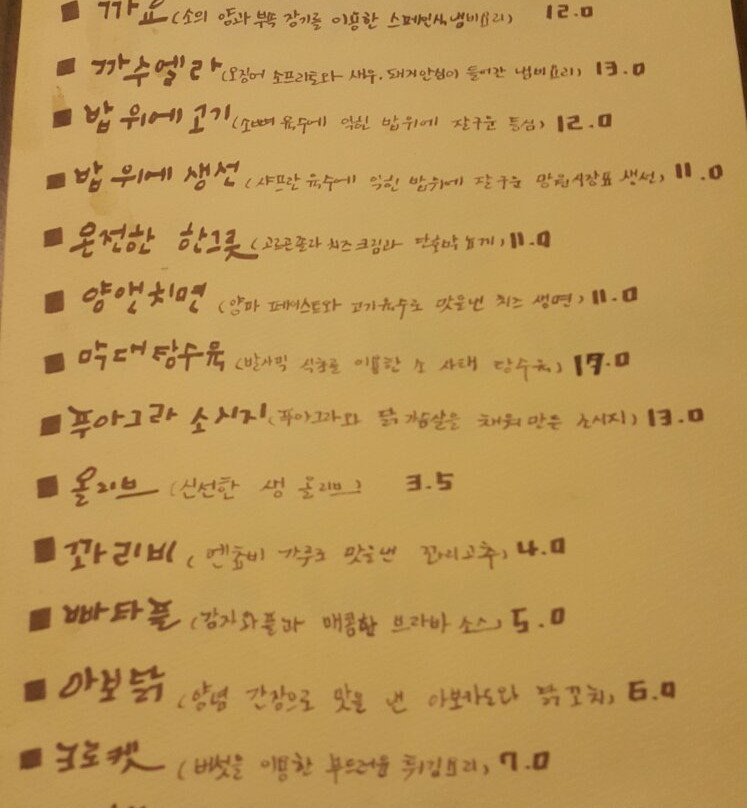 ■ 까요 (소의 양과 부속 장기를 이용한 스페인식 냄비요리) 12.0
■ 까수엘라 (오징어 소프리토와 새우, 돼지안심이 들어간 냄비요리) 13.0
■ 밥 위에 고기 (소뼈 육수에 익힌 밥위에 잘구운 등심) 12.0
■ 밥 위에 생선 (샤프란 육수에 익힌 밥위에 잘구운 망원시장표 생선) 11.0
■ 온전한 한그릇 (고르곤졸라 치즈크림과 단호박 뇨끼) 11.0
■ 양앤치면 (양파 페이스트와 고기육수로 맛을낸 치즈 생면) 11.0
■ 막대탕수육 (발사믹 식초를 이용한 소 사태 탕수육) 17.0
■ 푸아그라 소시지 (푸아그라와 닭가슴살을 채워 만든 소시지) 13.0
■ 올리브 (신선한 생 올리브) 3.5
■ 꽈리비 (엔쵸비 가루로 맛을낸 꽈리고추) 4.0
■ 빠타플 (감자와플과 매콤한 브라바 소스) 5.0
■ 아보닭 (양념 간장으로 맛을 낸 아보카도와 닭꼬치) 6.0
■ 크로켓 (버섯을 이용한 부드러운 튀김요리) 7.0